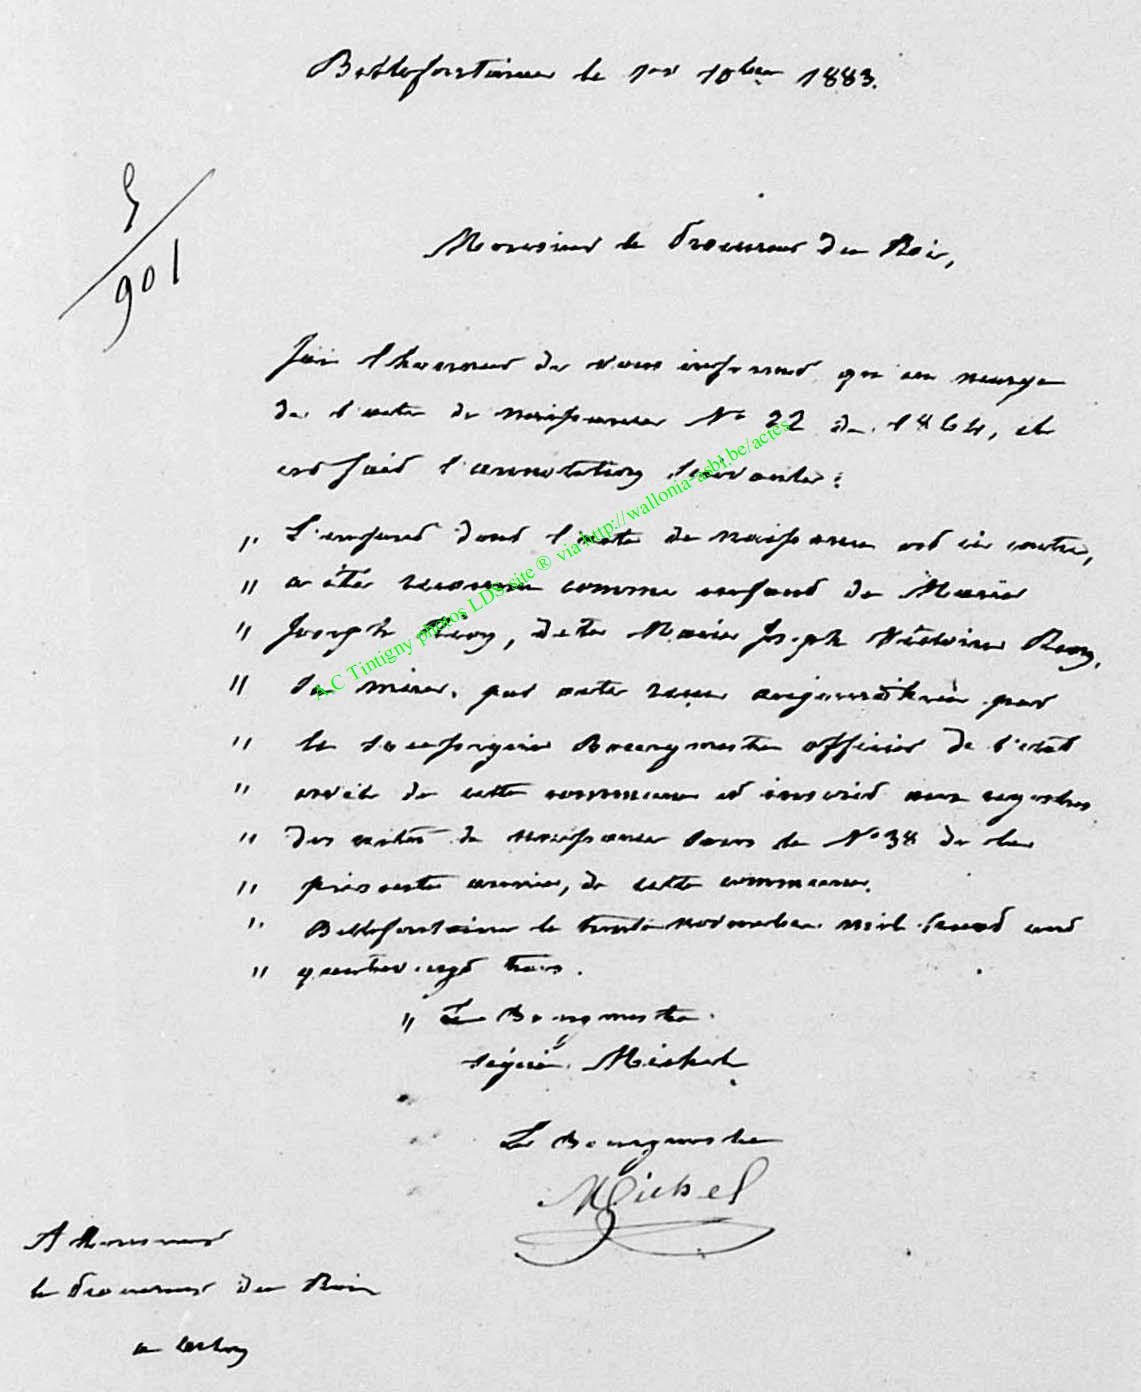 Bellefontaine le 1er 10bre 1883.
5/901
Monsieur le Procureur du Roi,
J'ai l'honneur de vous informer qu'en marge
de l'acte de naissance No 22 de 1864, il
est fait l'annotation suivante :
" L'enfant dont l'acte de naissance est ci contre,
" a été reconnu comme enfant de Marie
" Joseph, dite Marie Joseph Victoire
" sa mère, par acte reçu aujourd'hui par
" le soussigné Bourgmestre officier de l'etat
" civil de cette commune et inscrit aux registres
" des actes de naissance sous le No 38 de la
" présente année, de cette commune.
" Bellefontaine le trente novembre mil huit cent
" quatre vingt trois.
" Le Bourgmestre.
signé. Michel
Le Bourgmestre
Michel
A Monsieur
le Procureur du Roi
a Arlon
A.C Tintigny photos LDS site ® via http://wallonia-asbl.be/actes